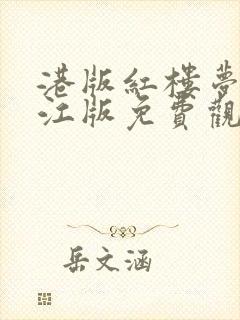 港版紅樓夢
江版免費觀
岳文涵